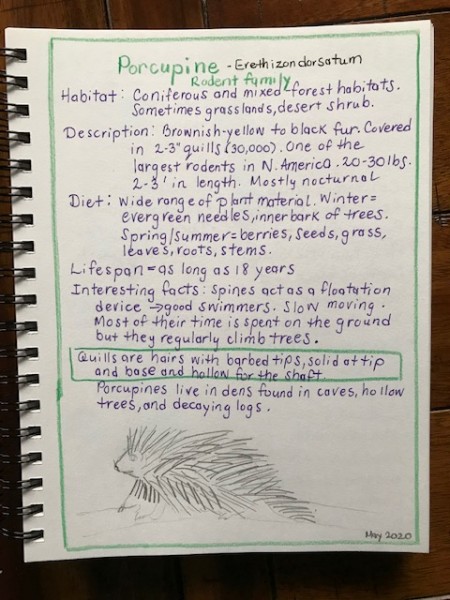 Porcupine - Erethizon dorsatum
Rodent family
Habitat: Coniferous and mixed forest habitats.
Sometimes grasslands, desert shrub.
Description: Brownish-yellow to black fur. Covered
in 2-3" quills (30,000). One of the
largest rodents in N. America. 20-30 lbs.
2-3' in length. Mostly nocturnal
Diet: Wide range of plant material. Winter=
evergreen needles, inner bark of trees.
Spring/summer= berries, seeds, grass,
leaves, roots, stems.
Lifespan = as long as 18 years
Interesting facts: Spines act as a floatation
device → good swimmers. Slow moving.
Most of their time is spent on the ground
but they regularly climb trees.
Quills are hairs with barbed tips, solid at tip
and base and hollow for the shaft.
Porcupines live in dens found in caves, hollow
trees, and decaying logs.
May 2020